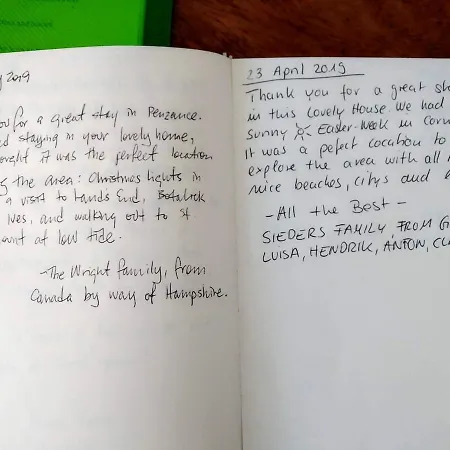 2019
for a great stay in Penzance.
staying in your lovely home,
it was the perfect location
the area: Christmas lights in
a visit to Lands End, Botalack
Ives, and walking out to St
ount at low tide.
-The Wright family, from
Canada by way of Hampshire.
23 April 2019
Thank you for a great st
in this Lovely House. We had
sunny Easter-Week in Corn
It was a pefect cocation to
explore the area with all
nice beaches, citys and
- All the Best -
SIEDERS FAMILY FROM G
LUISA, HENDRIK, ANTON, CL